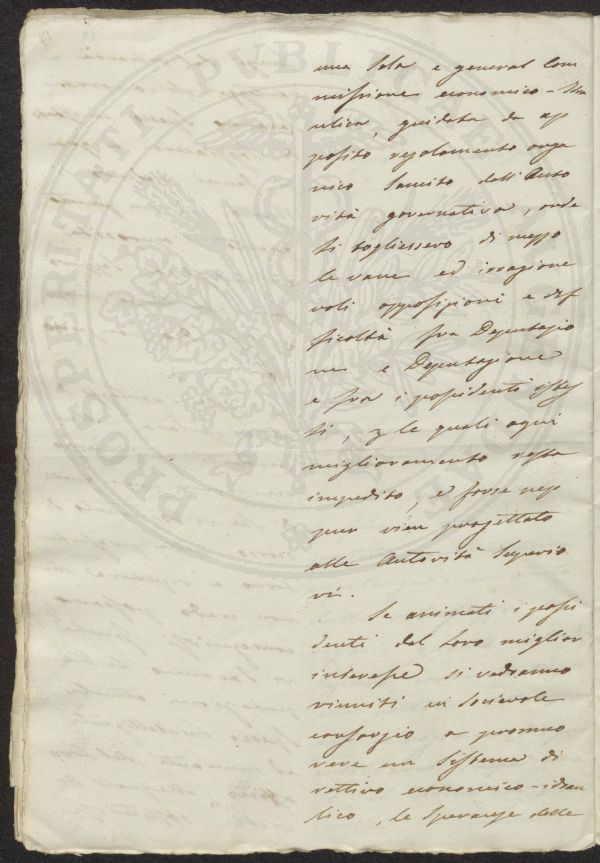 una sola e general Com
missione economico-Idra
ulica, guidata da ap
posito regolamento orga
nico sancito dall'Auto
rità governativa, onde
si togliessero di mezzo
le vane ed irragione
voli opposizioni e dif
ficoltà fra Deputazio
ne e Deputazione
e fra i possidenti istes
si, per le quali ogni
miglioramento resta
impedito, e forse nep
pur vien progettato
alle Autorità Superio
ri.
Se animati i possi
denti dal loro miglior
interesse si vedranno
riuniti in socievole
consorzio a promuo
vere un sistema di
rettivo economico-idrau
lico, le speranze delle
PROSPERITATI PUBLICAE